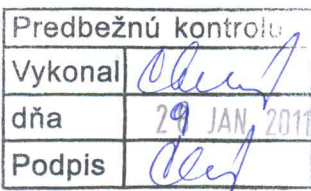 Predbežnú kontrolu
Vykonal
dňa JAN 2011
Podpis